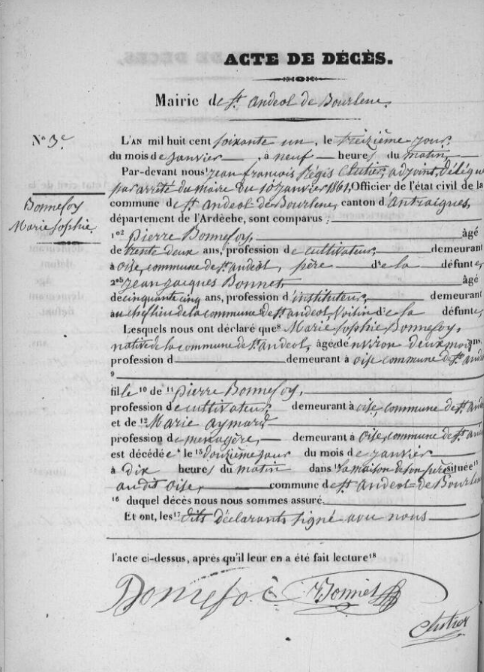 ACTE DE DÉCÈS.
Mairie de St. andeol de Bourlenc.
No. 3e
L'AN mil huit cent soixante un, le treizième jour
du mois de janvier à neuf heures du matin
Par-devant nous jean françois Régis adjoint délégué
par arrêté du maire du 10 janvier 1861, Officier de l'état civil de la
Bonnefoy
Marie Sophie
commune de St andeol de Bourlenc, canton d'antraigues,
département de l'Ardèche, sont comparus :
1ent pierre Bonnefoy âgé
de trente deux ans, profession de cultivateur demeurant
à oise, commune de St andeol, père d'e la défunte,
2ent jean jacques Bonnet âgé
de cinquante cinq ans, profession d'instituteur, demeurant
au chef lieu de la commune de St andeol, voisin d'e la défunte,
Lesquels nous ont déclaré que 8 Marie Sophie Bonnefoy,
native de la commune de St andeol, âgée d'environ deux mois
profession d demeurant à oise commune de St and
9
fille 10 de 11 pierre Bonnefoy,
profession de cultivateur demeurant à oise, commune de St and
et de 12 Marie aymard
profession de menagère, demeurant à oise, commune de St and
est décédée le 13 douzième jour du mois de janvier
à dix heures du matin dans la maison de son père située 15
audit oise, commune de St andeol de Bourlenc
16 duquel décès nous nous sommes assuré.
Et ont, les 17 dits déclarants signé avec nous
l'acte ci-dessus, après qu'il leur en a été fait lecture 18
Bonnefoi Bonnet